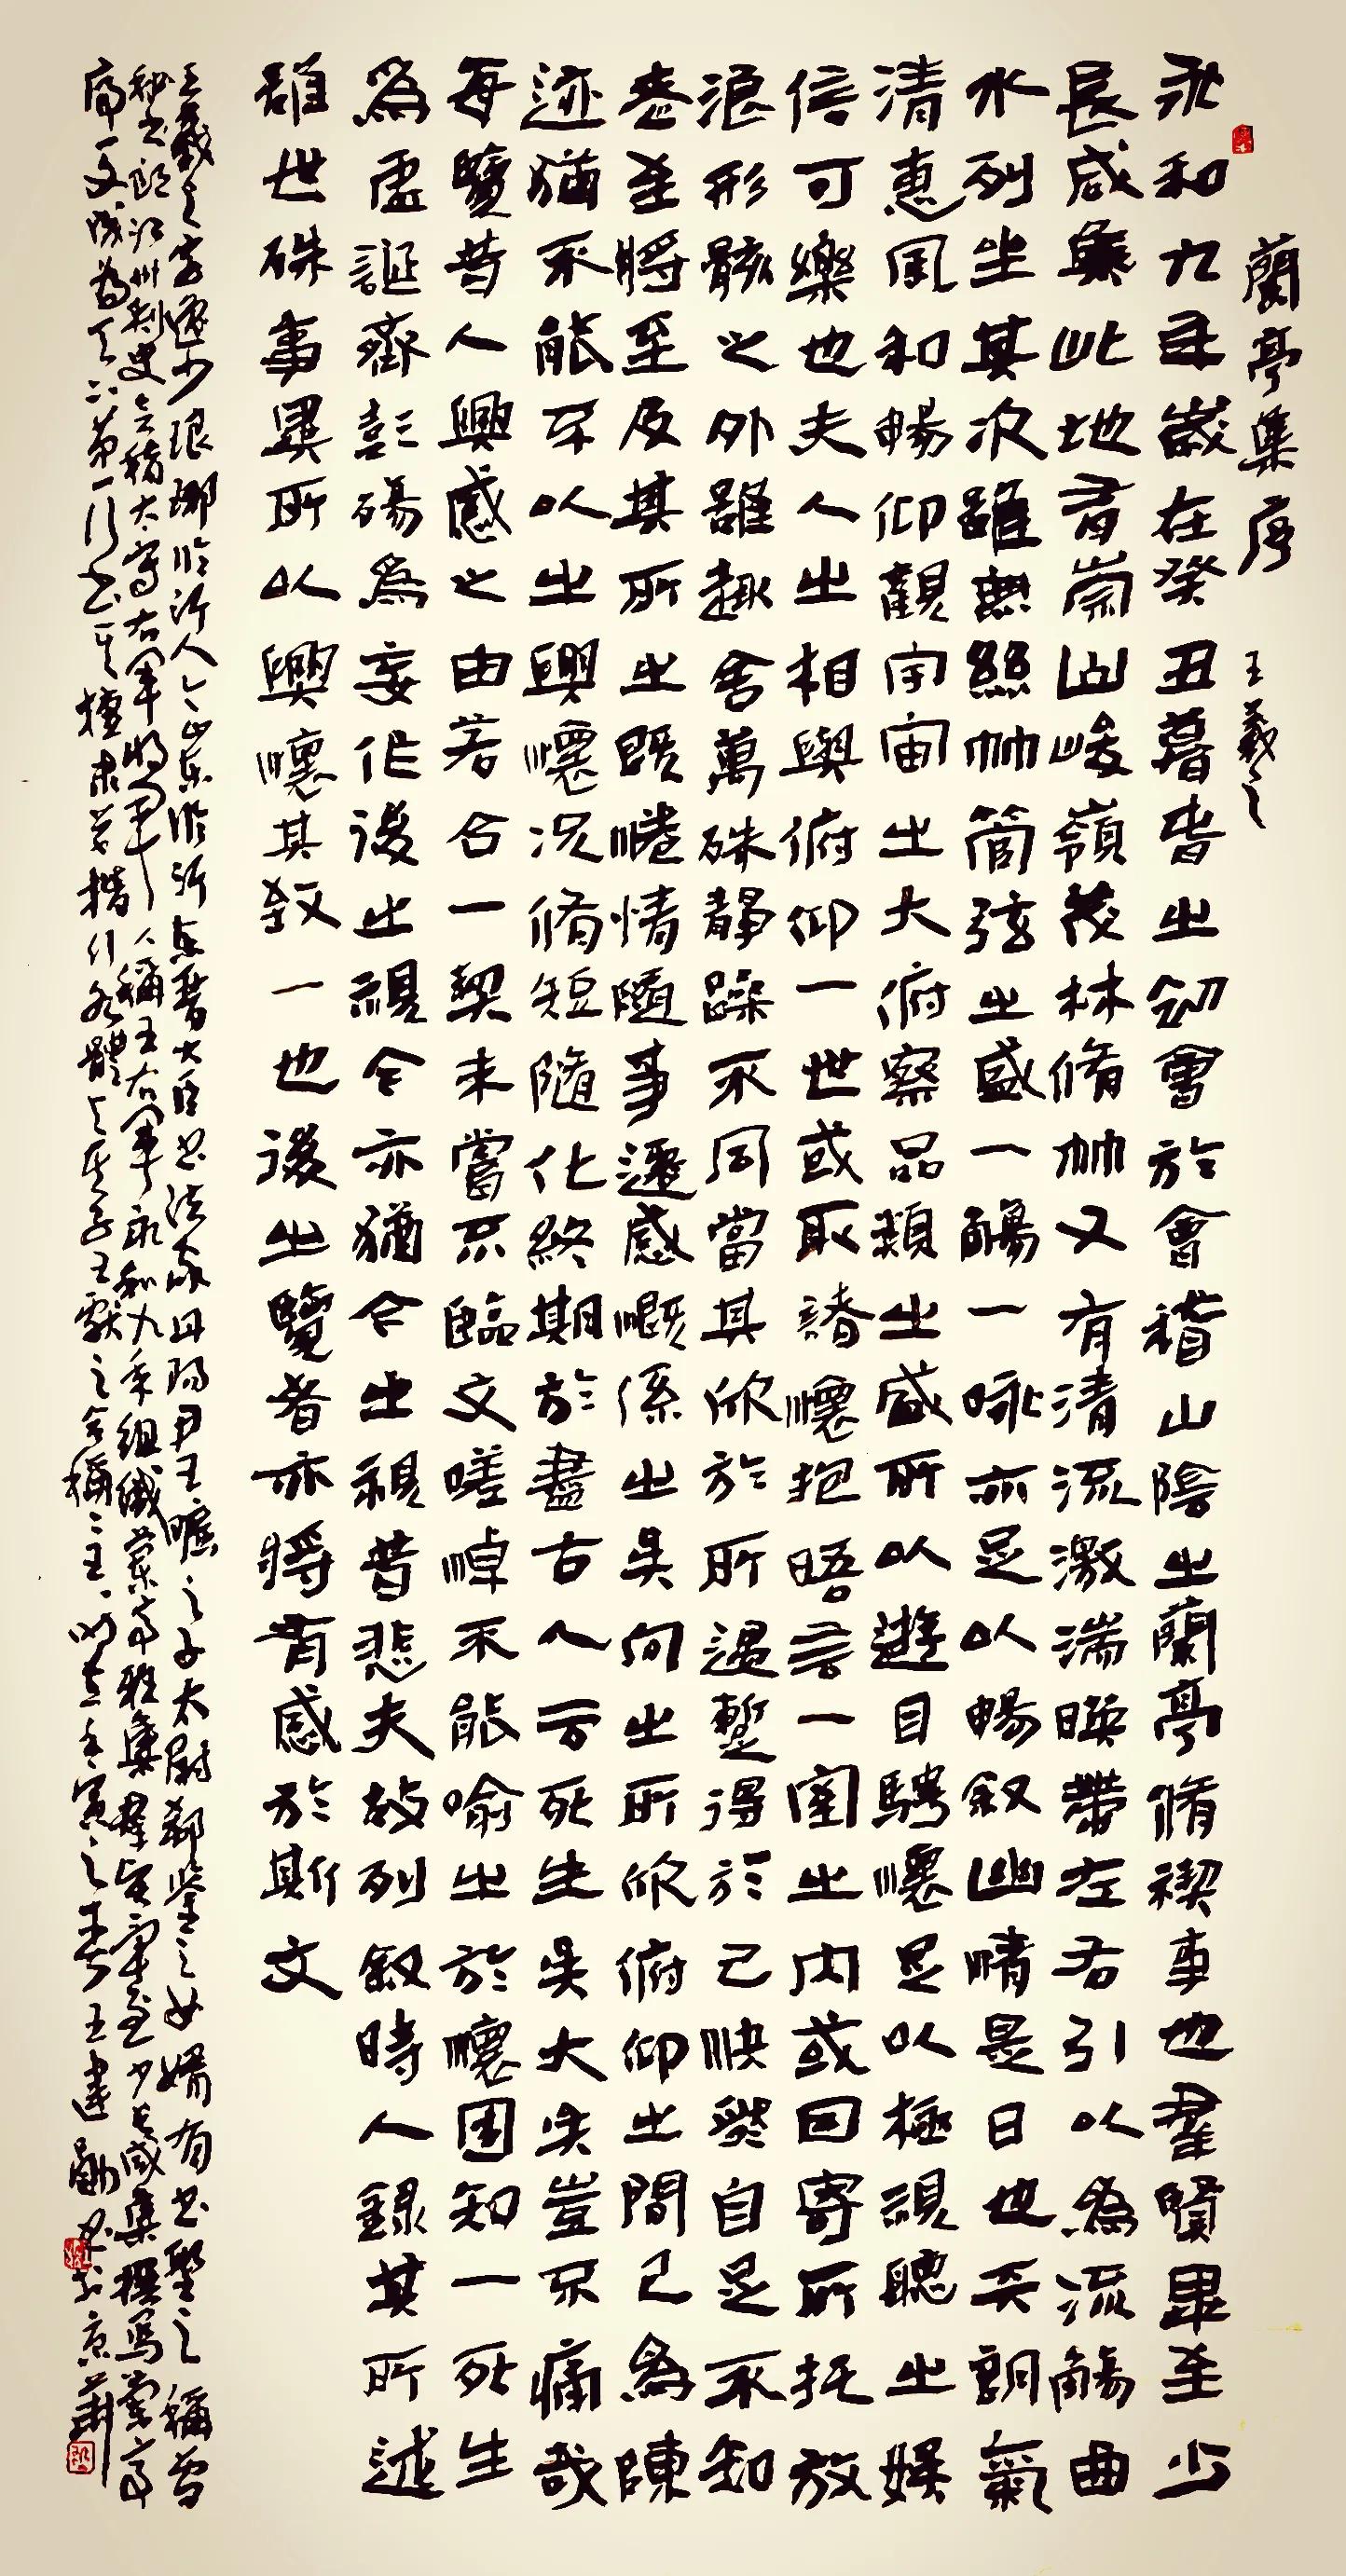 蘭亭集序 王羲之
永和九年歲在癸丑暮春之初會於會稽山陰之蘭亭脩禊事也羣賢畢至少
長咸集此地有崇山峻嶺茂林脩竹又有清流激湍暎帶左右引以為流觴曲
水列坐其次雖無絲竹管弦之盛一觴一詠亦足以暢叙幽情是日也天朗氣
清惠風和暢仰觀宇宙之大俯察品類之盛所以遊目騁懷足以極視聽之娛
信可樂也夫人之相與俯仰一世或取諸懷抱晤言一室之內或因寄所托放
浪形骸之外雖趣舍萬殊靜躁不同當其欣於所遇暫得於己快然自足不知
老至將至及其所之既惓情隨事遷感慨係之矣向之所欣俯仰之間已為陳
迹猶不能不以之興懷況脩短隨化終期於盡古人云死生矣大矣豈不痛哉
每覽昔人興感之由若合一契未嘗不臨文嗟悼不能喻之於懷固知一死生
為虛誕齊彭殤為妄作後之視今亦猶今之視昔悲夫故列叙時人錄其所述
雖世殊事異所以興懷其致一也後之覽者亦將有感於斯文
王羲之字逸少琅琊臨沂人今山東臨沂東晉大臣書法家丹陽尹王曠之子太尉郗鑒之女婿有書聖之稱曾
秘書郎江州刺史會稽太守右軍將軍人稱王右軍永和九年組織蘭亭雅集群賢畢至少長咸集撰寫蘭亭
序一文成為天下第一行書其擅隸草楷行各體其子王獻之合稱二王時在壬寅之春王建勛書於京華